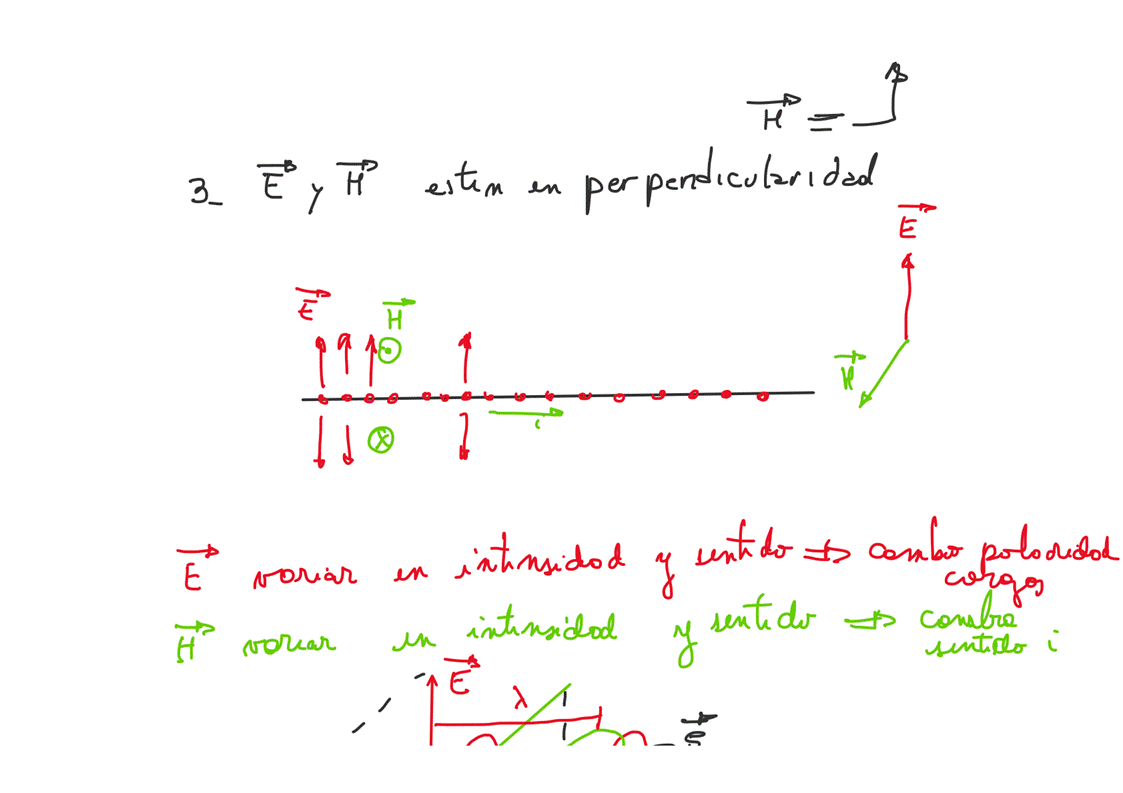 H =
3_ E y H estin en perpendicularidad
E
E
H
H
i
E variar en intensidad y sentido => cambio polaridad
cargas
H variar en intensidad y sentido => cambia
sentido i
E
λ